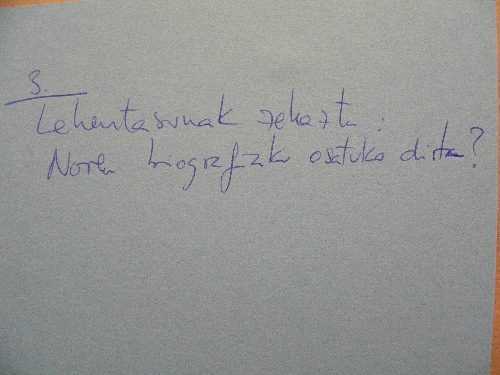 3.
Lehentasunak zehaztu:
Noren biografiak osatuko dira?